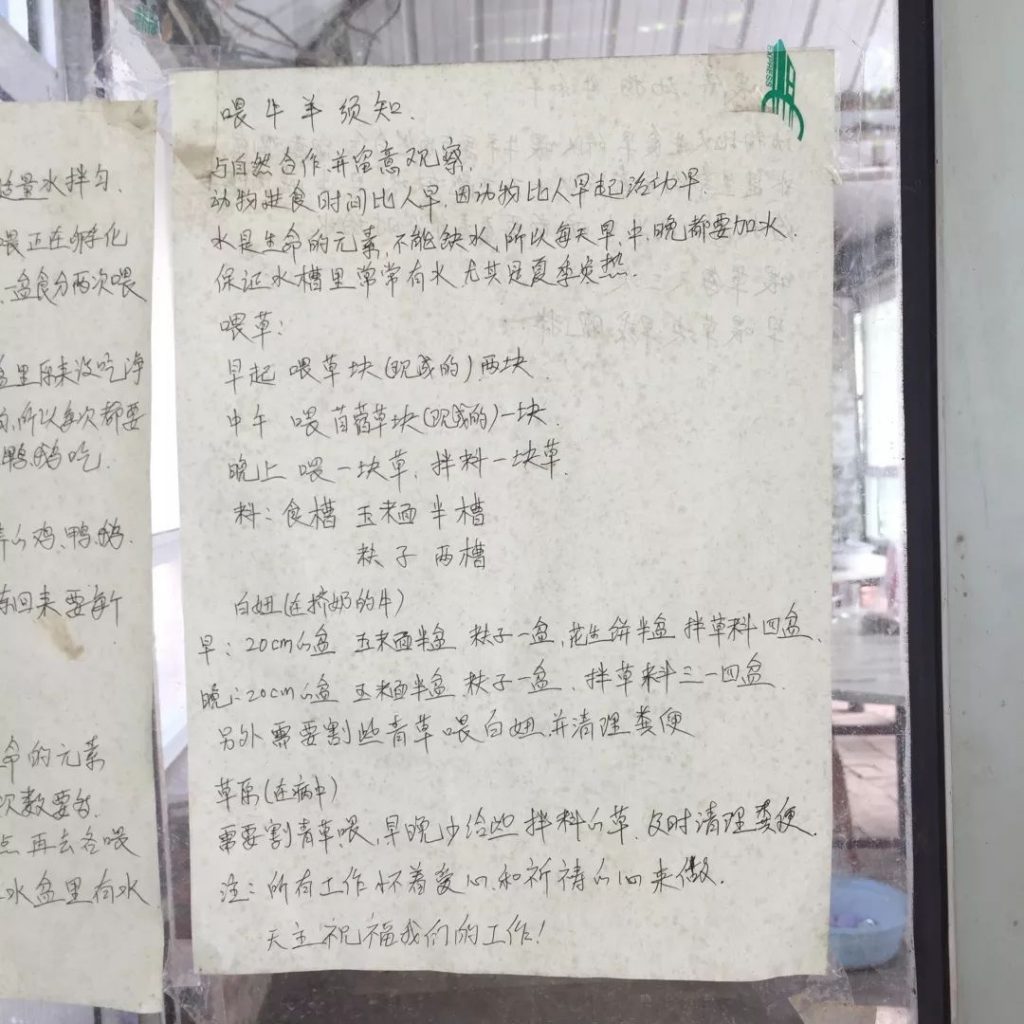 适量水拌匀.
喂正在孵化
一盆食分两次喂
盆里原来没吃净
的,所以每次都要
鸭,鹅吃.
的鸡、鸭、鹅.
回来要新
命的元素
次数要多
点再去各喂
水盆里有水
喂牛羊须知.
与自然合作,并留意观察.
动物进食时间比人早,因动物比人早起活动早.
水是生命的元素,不能缺水,所以每天早、中、晚都要加水.
保证水槽里常常有水 尤其是夏季炎热.
喂草:
早起 喂草块(现成的)两块.
中午 喂苜蓿草块(现成的)一块.
晚上 喂一块草, 拌料一块草.
料: 食槽 玉米面 半槽
麸子 两槽
白妞(在挤奶的牛)
早: 20cm的盆 玉米面半盆 麸子一盆,花生饼半盆 拌草料四盆.
晚: 20cm的盆 玉米面半盆 麸子一盆. 拌草料三一四盆.
另外需要割些青草喂白妞,并清理粪便
草原(在病中)
需要割青草喂,早晚少给些拌料的草. 及时清理粪便.
注: 所有工作怀着爱心和祈祷的心来做.
天主祝福我们的工作!
EXPRESS